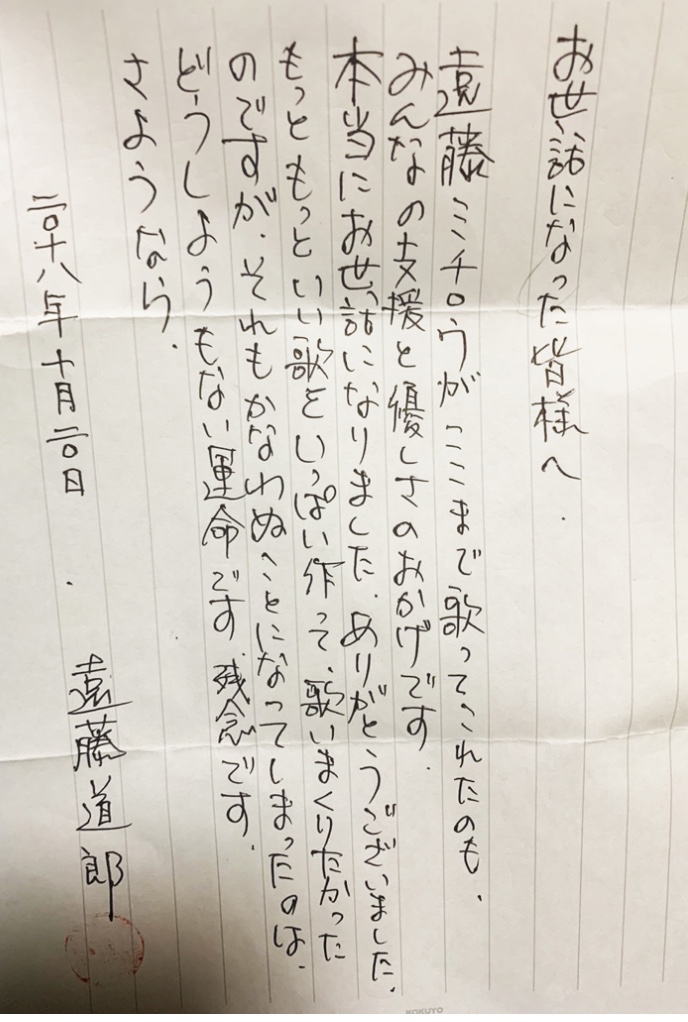 お世話になった皆様へ.
遠藤ミチロウがここまで歌ってこれたのも、
みんなの支援と優しさのおかげです.
本当にお世話になりました.ありがとうございました.
もっともっといい歌をいっぱい作って、歌いまくりたかった
のですが、それもかなわぬことになってしまったのは、
どうしようもない運命です.残念です.
さようなら.
二〇十八年十月二〇日
遠藤道郎
KOKUYO